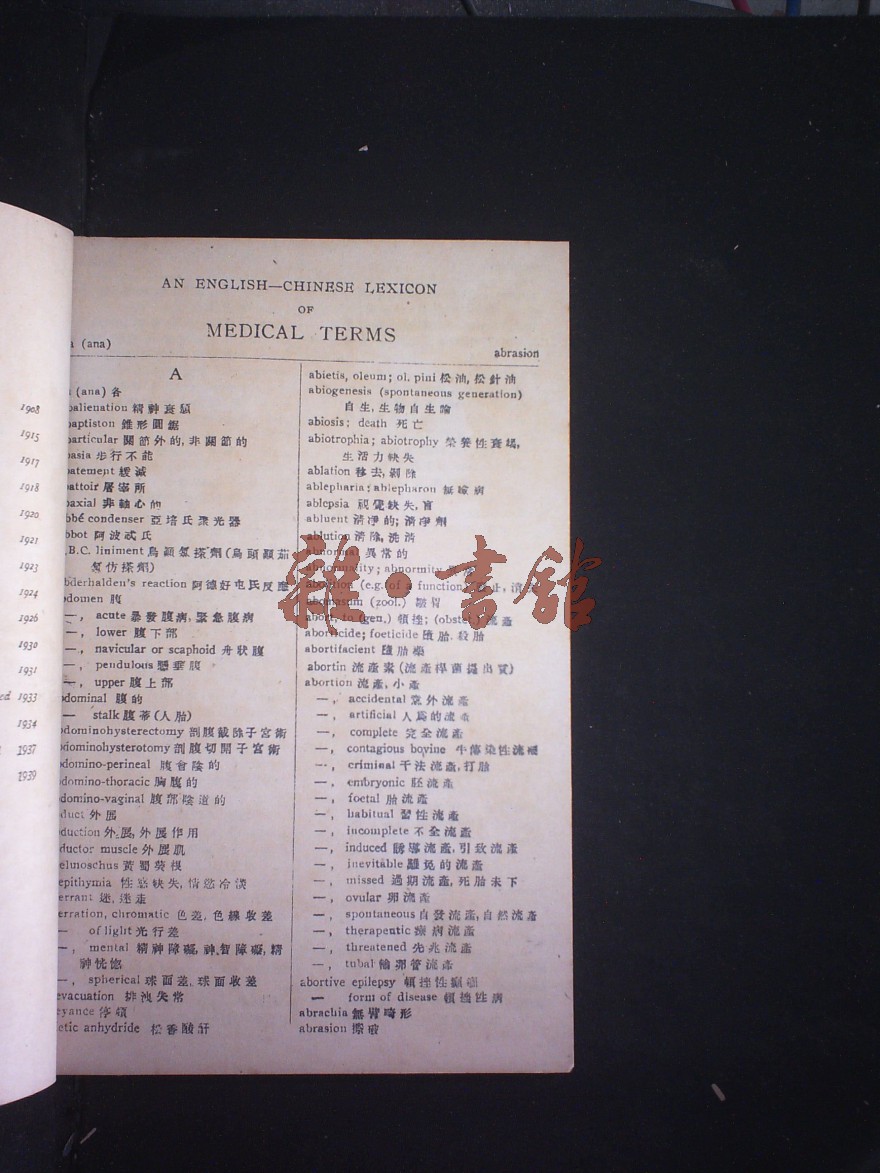 1908
1915
1917
1918
1920
1921
1923
1924
1926
1930
1931
ed 1933
1934
1937
1939
AN ENGLISH—CHINESE LEXICON
OF
MEDICAL TERMS
(ana)
abrasion
A
(ana) 各
balienation 精神衰頹
baptiston 錐形圓鋸
barticular 關節外的, 非關節的
basia 步行不能
batement 緩減
battoir 屠宰所
baxial 非軸心的
bbé condenser 亞培氏聚光器
bbot 阿波忒氏
.B.C. liniment 烏顛氯搽劑(烏頭顛茄
氯仿搽劑)
bderhalden's reaction 阿德好屯氏反應
bdomen 腹
—, acute 暴發腹病, 緊急腹病
—, lower 腹下部
—, navicular or scaphoid 舟狀腹
—, pendulous 懸垂腹
—, upper 腹上部
bdominal 腹的
— stalk 腹蒂(人胎)
bdominohysterectomy 剖腹截除子宮術
bdominohysterotomy 剖腹切開子宮術
bdomino-perineal 腹會陰的
bdomino-thoracic 胸腹的
bdomino-vaginal 腹部陰道的
duct 外展
duction 外展, 外展作用
ductor muscle 外展肌
elmoschus 黃蜀葵
epithymia 性慾缺失, 情慾冷淡
errant 迷, 迷走
erration, chromatic 色差, 色線收差
— of light 光行差
—, mental 精神障礙, 神智障礙, 精
神恍惚
—, spherical 球面差, 球面收差
evacuation 排洩失常
eyance 停頓
etic anhydride 松香酸酐
abietis, oleum; ol. pini 松油, 松針油
abiogenesis (spontaneous generation)
自生, 生物自生論
abiosis; death 死亡
abiotrophia; abiotrophy 榮養性衰竭,
生活力缺失
ablation 移去, 剝除
ablepharia; ablepharon 無瞼病
ablepsia 視覺缺失, 盲
abluent 清淨的; 清淨劑
ablution 清除, 洗滌
abnormal 異常的
abnormality; abnormity
abolition (e.g. of a function)
abomasum (zool.) 皺胃
abort, to (gen.) 頓挫; (obstet.) 流產
aborticide; foeticide 墮胎, 殺胎
abortifacient 墮胎藥
abortin 流產素(流產桿菌提出質)
abortion 流產, 小產
—, accidental 意外流產
—, artificial 人爲的流產
—, complete 完全流產
—, contagious bovine 牛傳染性流產
—, criminal 干法流產, 打胎
—, embryonic 胚流產
—, foetal 胎流產
—, habitual 習性流產
—, incomplete 不全流產
—, induced 誘導流產, 引致流產
—, inevitable 難免的流產
—, missed 過期流產, 死胎未下
—, ovular 卵流產
—, spontaneous 自發流產, 自然流產
—, therapeutic 療病流產
—, threatened 先兆流產
—, tubal 輸卵管流產
abortive epilepsy 頓挫性癲癇
— form of disease 頓挫性病
abrachia 無臂畸形
abrasion 擦破
雜·書館